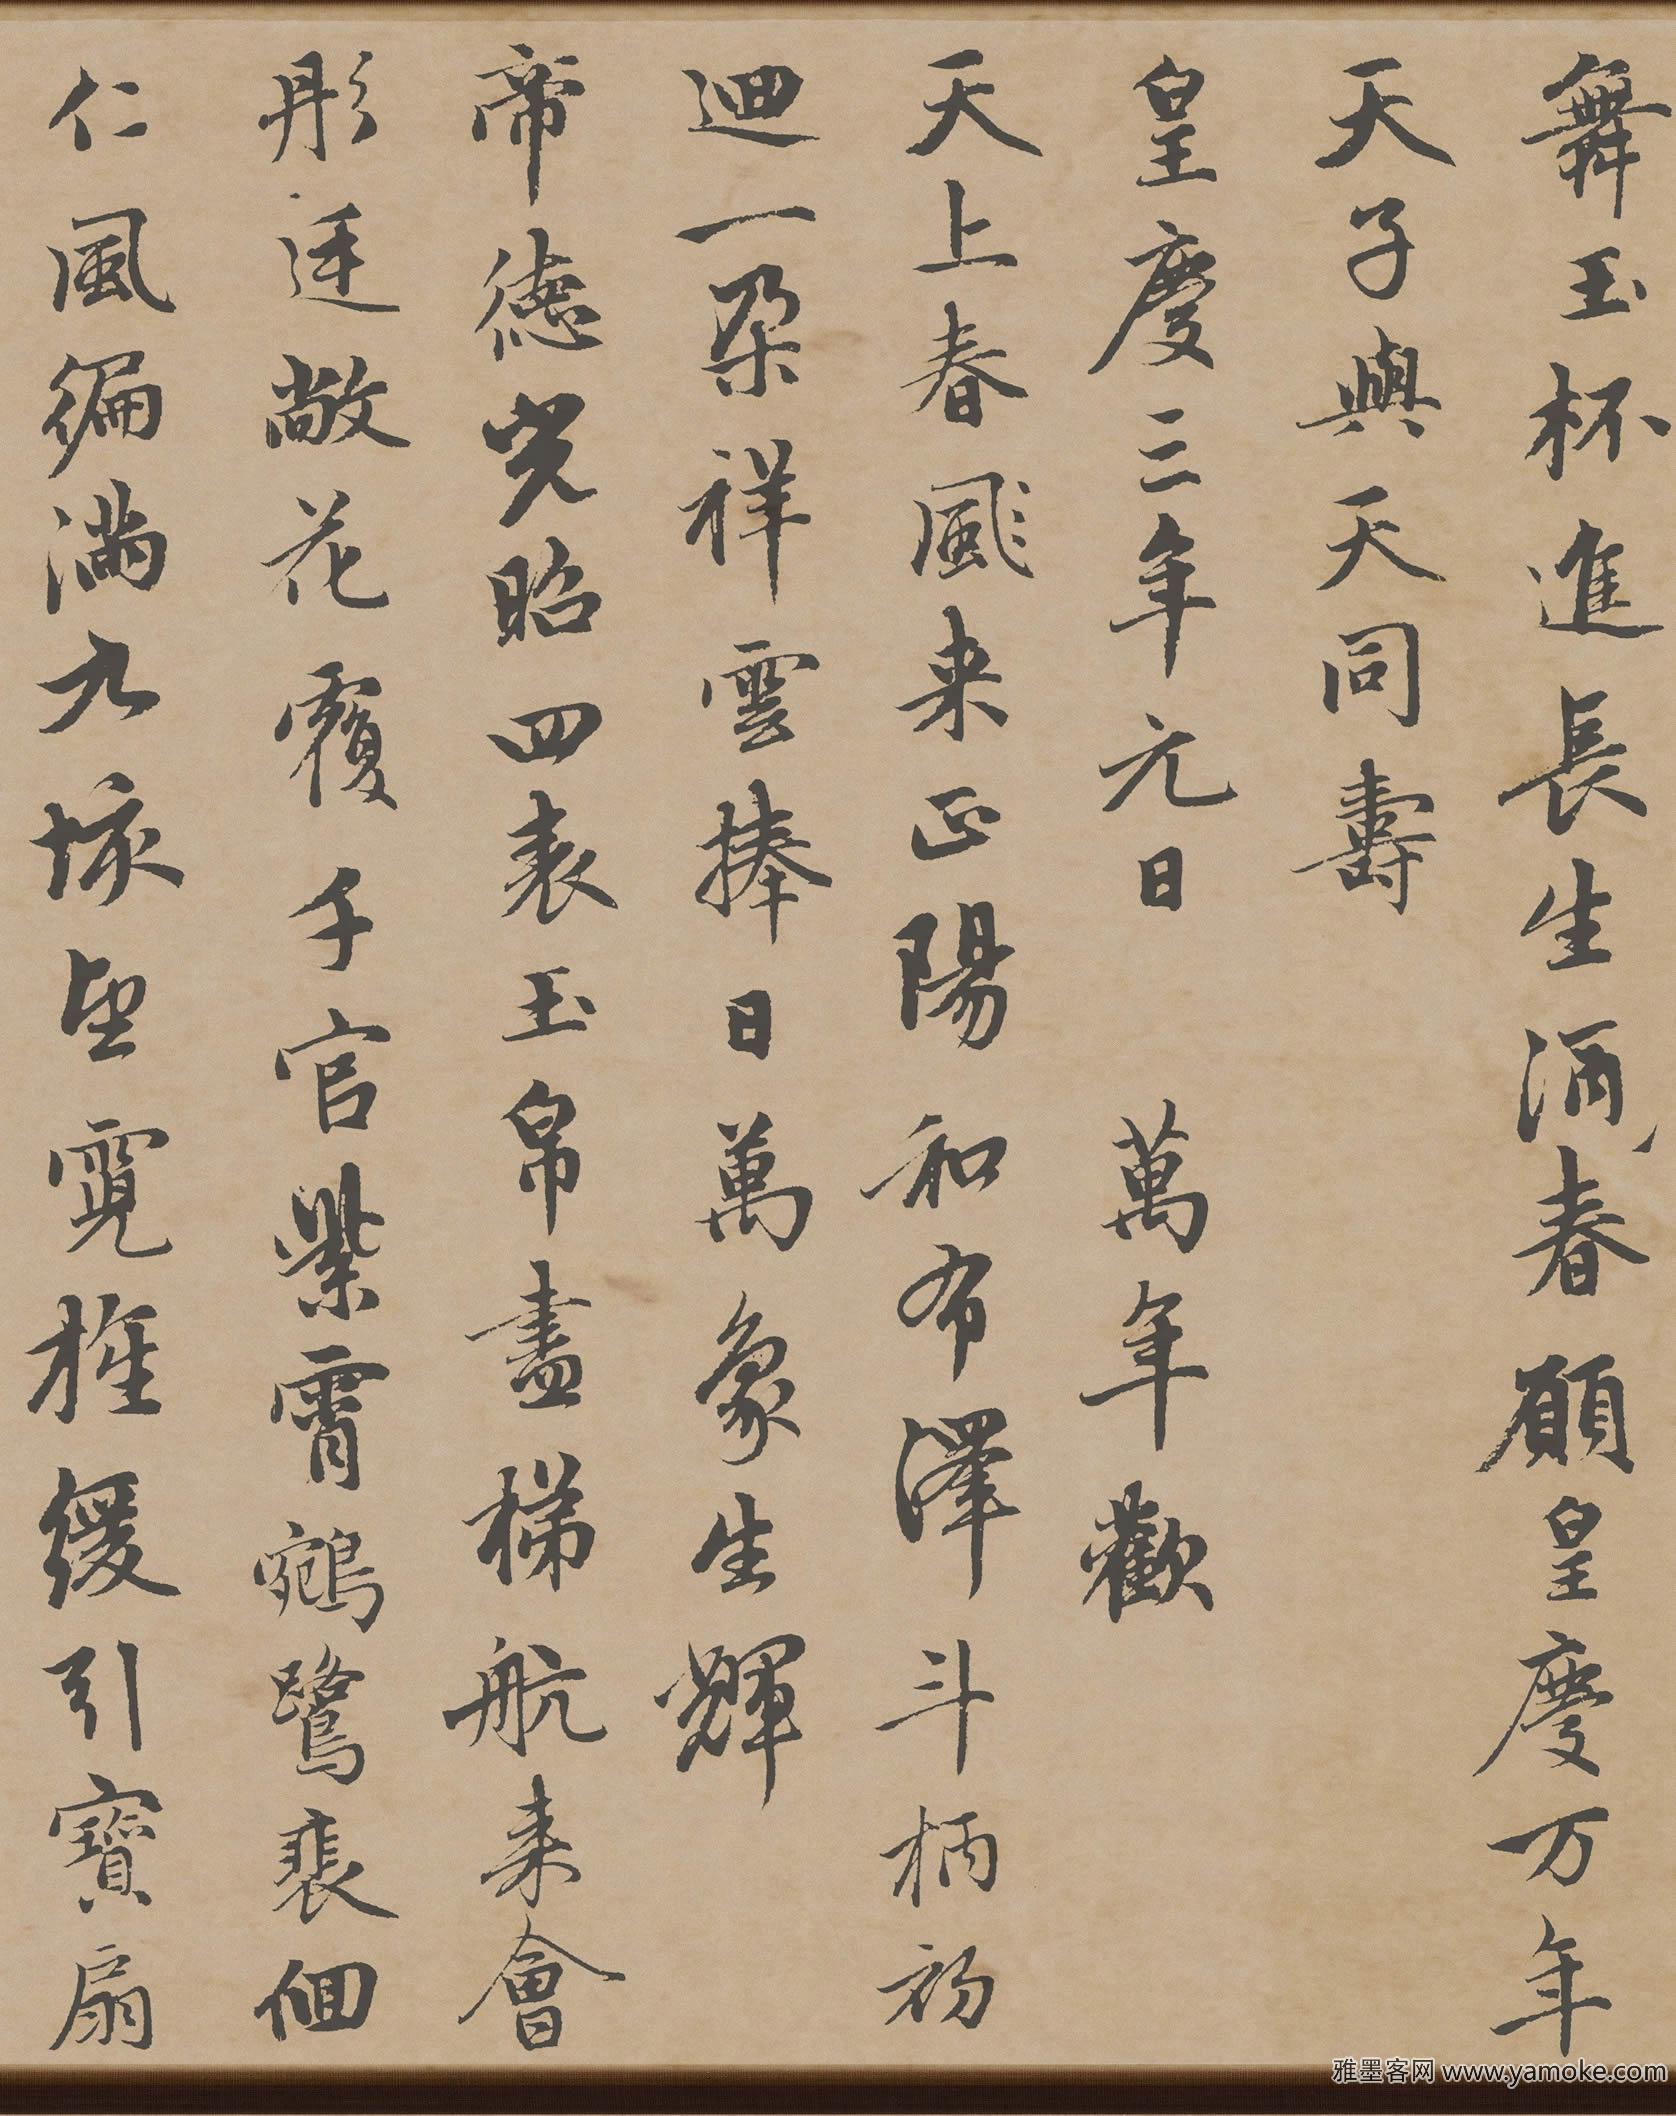 舞玉杯進長生酒春願皇慶万年
天子與天同壽
皇慶三年元日 萬年歡
天上春風来正陽和布澤斗柄初
迴一朵祥雲捧日萬象生輝
帝德光昭四表玉帛盡梯航来會
彤廷敞花覆千官紫霄鵷鷺裴佪
仁風徧滿九垓望霓旌緩引寶扇
雅墨客网 www.yamoke.com